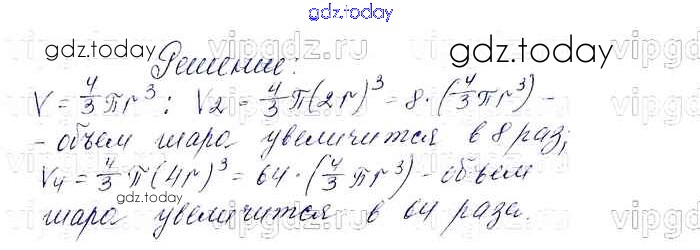 gdz.today
gdz.today
vipgdz.ru
gdz.today
Решение:
V = 4/3 πr³; V₂ = 4/3 π(2r)³ = 8·(4/3 πr³) -
- объем шара увеличится в 8 раз;
V₄ = 4/3 π(4r)³ = 64·(4/3 πr³) - объем
gdz.today
шара увеличится в 64 раза.